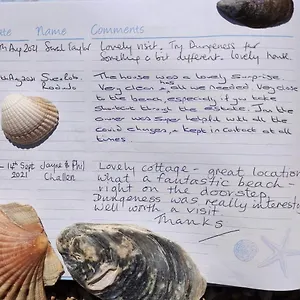 Date Name Comments
th Aug 2021 Taylor Lovely visit. Try Dungeness for
something a bit different. Lovely house.
Aug 2021 Sue & Rob. The house was a lovely surprise.
Very clean & has all we needed. Very close
to the beach, especially if you take
shortcut through the estate. Jim the
owner was super helpful with all the
covid changes, & kept in contact at all
times.
- 14th Sept Jayne & Phil Lovely cottage - great location
2021 Challen what a fantastic beach -
right on the doorstep.
Dungeness was really interesti
Well worth a visit
Thanks